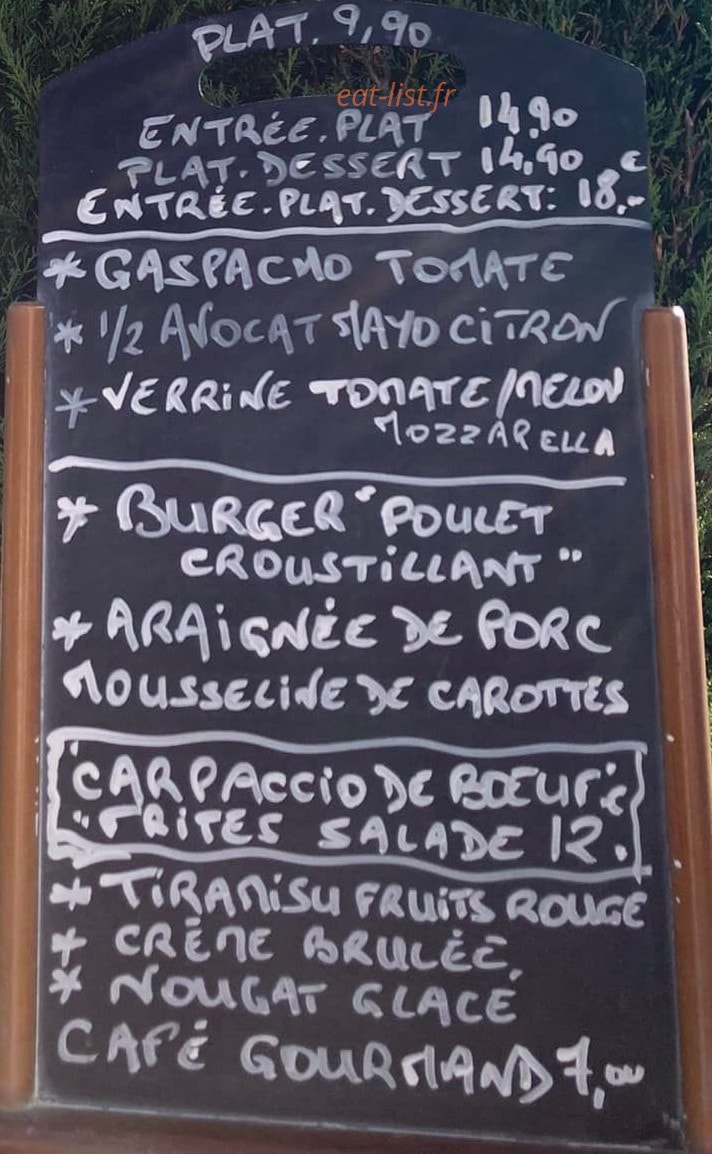 PLAT. 9,90
eat-list.fr
ENTRÉE.PLAT 14,90
PLAT.DESSERT 14,90 €
ENTRÉE.PLAT.DESSERT: 18.-
* GASPACHO TOMATE
* 1/2 AVOCAT MAYO CITRON
* VERRINE TOMATE/MELON
MOZZARELLA
* BURGER "POULET
CROUSTILLANT"
* ARAIGNÉE DE PORC
MOUSSELINE DE CAROTTES
CARPACCIO DE BŒUF €
"FRITES SALADE 12.
* TIRAMISU FRUITS ROUGE
* CRÈME BRULÉE,
* NOUGAT GLACÉ
CAFÉ GOURMAND 7,00